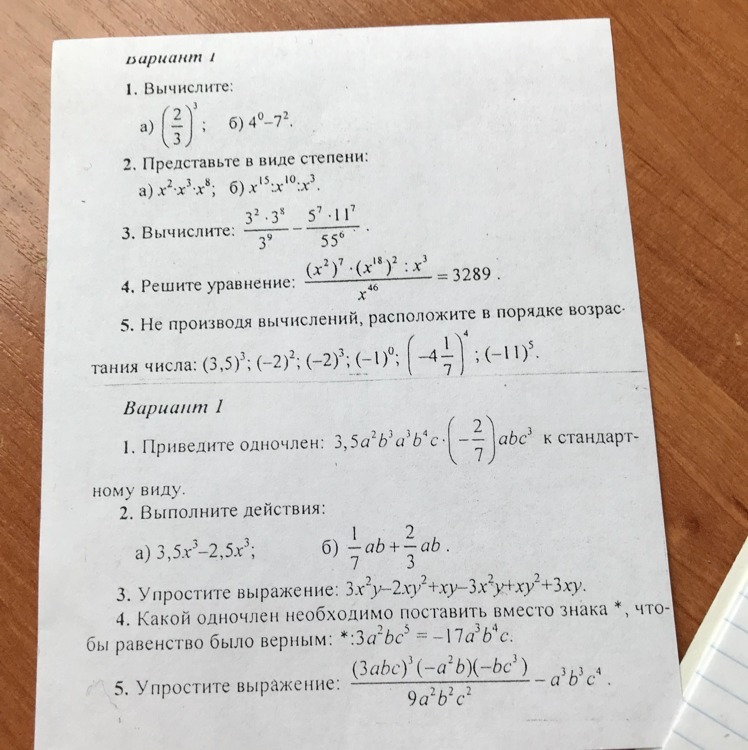 Вариант 1
1. Вычислите:
а) (2/3)³; б) 4⁰–7².
2. Представьте в виде степени:
а) x²·x³·x⁸; б) x¹⁵:x¹⁰:x³.
3. Вычислите: (3²·3⁸)/3⁹ – (5⁷·11⁷)/55⁶.
4. Решите уравнение: ((x²)⁷·(x¹⁸)²:x³)/x⁴⁶ = 3289.
5. Не производя вычислений, расположите в порядке возрас-
тания числа: (3,5)³; (–2)²; (–2)³; (–1)⁰; (–4 1/7)⁴; (–11)⁵.
Вариант 1
1. Приведите одночлен: 3,5a²b³a³b⁴c·(–2/7)abc³ к стандарт-
ному виду.
2. Выполните действия:
а) 3,5x³–2,5x³; б) 1/7 ab + 2/3 ab.
3. Упростите выражение: 3x²y–2xy²+xy–3x²y+xy²+3xy.
4. Какой одночлен необходимо поставить вместо знака *, что-
бы равенство было верным: *:3a²bc⁵ = –17a³b⁴c.
5. Упростите выражение: ((3abc)³(–a²b)(–bc³))/(9a²b²c²) – a³b³c⁴.